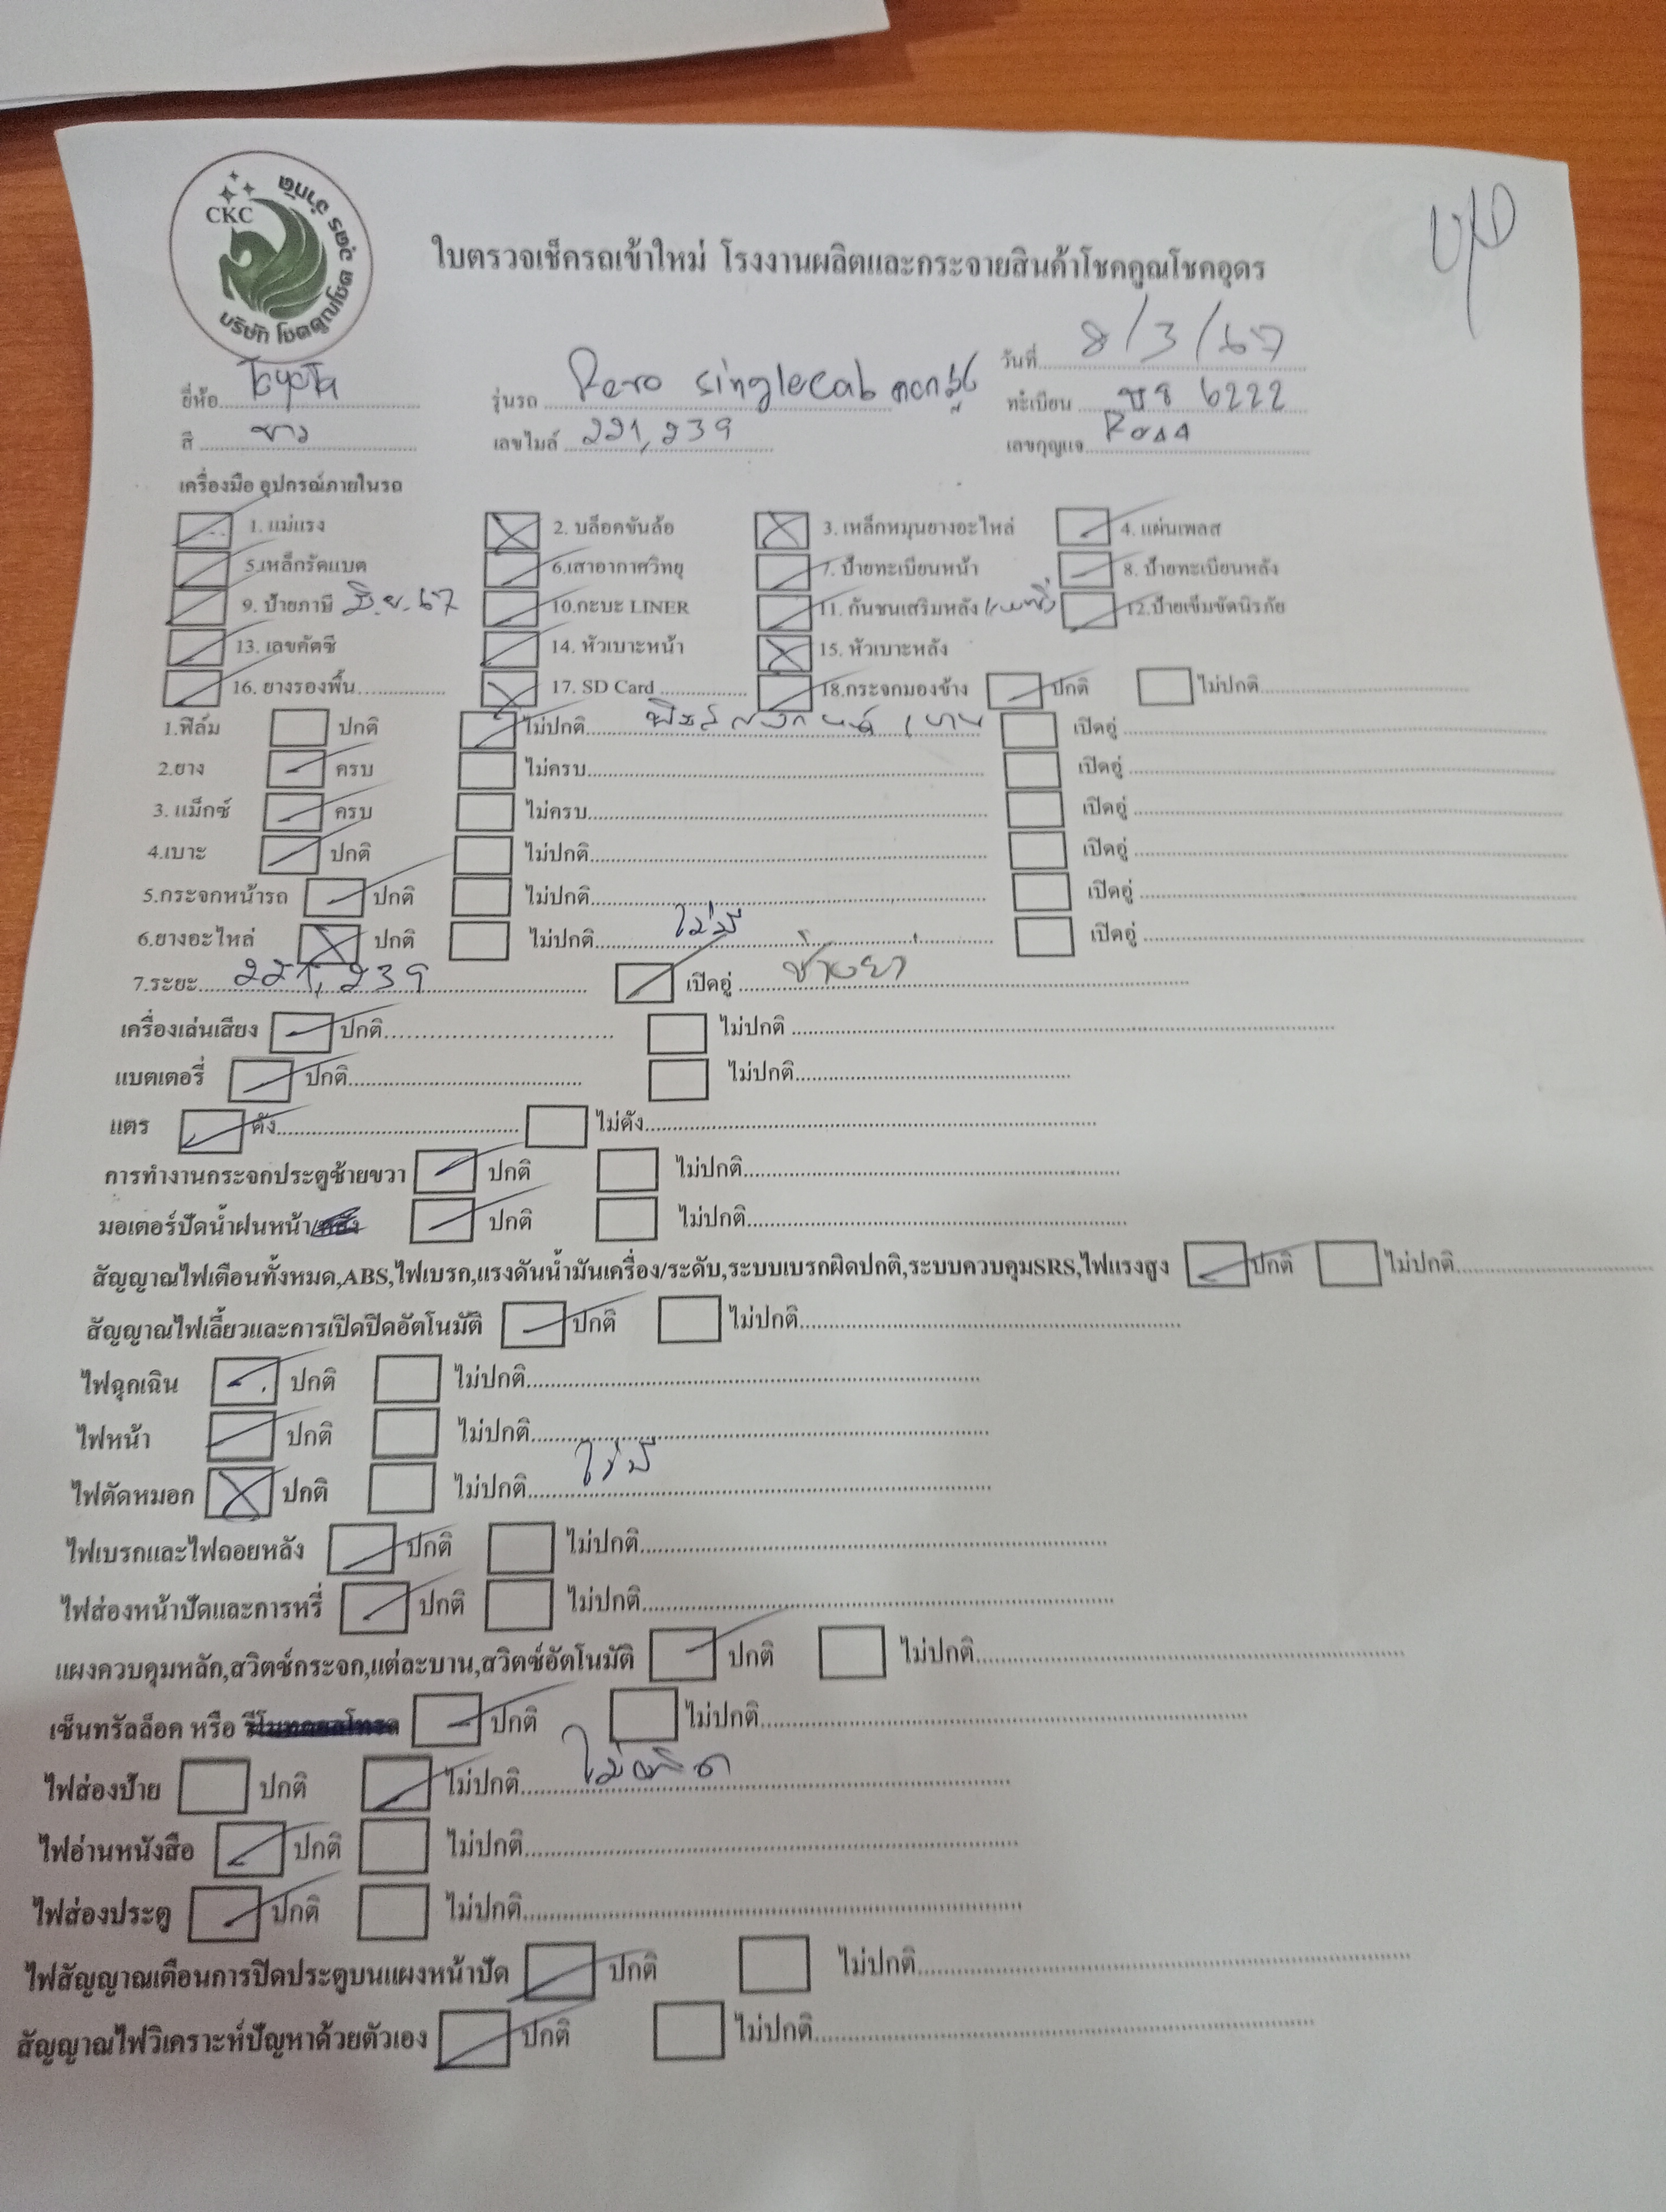 CKC
บริษัท โชคคูณโชค อุดร จำกัด
ใบตรวจเช็ครถเข้าใหม่ โรงงานผลิตและกระจายสินค้าโชคคูณโชคอุดร
วันที่ 8/3/67
ยี่ห้อ Toyota รุ่นรถ Revo singlecab ทะเบียน 6222
สี ขาว เลขไมล์ 221,239 เลขกุญแจ
เครื่องมือ อุปกรณ์ภายในรถ
1. แม่แรง 2. บล็อคขันล้อ 3. เหล็กหมุนยางอะไหล่ 4. แผ่นเพลส
5.เหล็กรัดแบต 6.เสาอากาศวิทยุ 7. ป้ายทะเบียนหน้า 8. ป้ายทะเบียนหลัง
9. ป้ายภาษี มิ.ย. 67 10.กะบะ LINER 11. กันชนเสริมหลัง 12.ป้ายเข็มขัดนิรภัย
13. เลขคัตซี 14. หัวเบาะหน้า 15. หัวเบาะหลัง
16. ยางรองพื้น 17. SD Card 18.กระจกมองข้าง ปกติ ไม่ปกติ
1.ฟิล์ม ปกติ ไม่ปกติ เปิดอู่
2.ยาง ครบ ไม่ครบ เปิดอู่
3. แม็กซ์ ครบ ไม่ครบ เปิดอู่
4.เบาะ ปกติ ไม่ปกติ เปิดอู่
5.กระจกหน้ารถ ปกติ ไม่ปกติ เปิดอู่
6.ยางอะไหล่ ปกติ ไม่ปกติ ไม่มี เปิดอู่
7.ระยะ 221,239 เปิดอู่
เครื่องเล่นเสียง ปกติ ไม่ปกติ
แบตเตอรี่ ปกติ ไม่ปกติ
แตร ดัง ไม่ดัง
การทำงานกระจกประตูซ้ายขวา ปกติ ไม่ปกติ
มอเตอร์ปัดน้ำฝนหน้า ปกติ ไม่ปกติ
สัญญาณไฟเตือนทั้งหมด,ABS,ไฟเบรก,แรงดันน้ำมันเครื่อง/ระดับ,ระบบเบรกผิดปกติ,ระบบควบคุมSRS,ไฟแรงสูง ปกติ ไม่ปกติ
สัญญาณไฟเลี้ยวและการเปิดปิดอัตโนมัติ ปกติ ไม่ปกติ
ไฟฉุกเฉิน ปกติ ไม่ปกติ
ไฟหน้า ปกติ ไม่ปกติ
ไฟตัดหมอก ปกติ ไม่ปกติ ไม่มี
ไฟเบรกและไฟถอยหลัง ปกติ ไม่ปกติ
ไฟส่องหน้าปัดและการหรี่ ปกติ ไม่ปกติ
แผงควบคุมหลัก,สวิตซ์กระจก,แต่ละบาน,สวิตซ์อัตโนมัติ ปกติ ไม่ปกติ
เซ็นทรัลล็อค หรือ ปกติ ไม่ปกติ
ไฟส่องป้าย ปกติ ไม่ปกติ
ไฟอ่านหนังสือ ปกติ ไม่ปกติ
ไฟส่องประตู ปกติ ไม่ปกติ
ไฟสัญญาณเตือนการปิดประตูบนแผงหน้าปัด ปกติ ไม่ปกติ
สัญญาณไฟวิเคราะห์ปัญหาด้วยตัวเอง ปกติ ไม่ปกติ